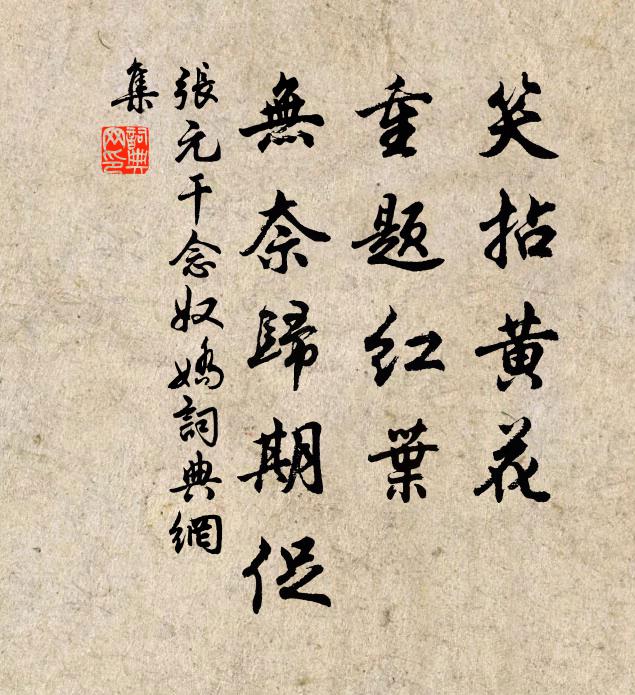 笑拈黄花
重题红葉
無奈歸期促
張元干念奴嬌詞典網
集
詞典網印